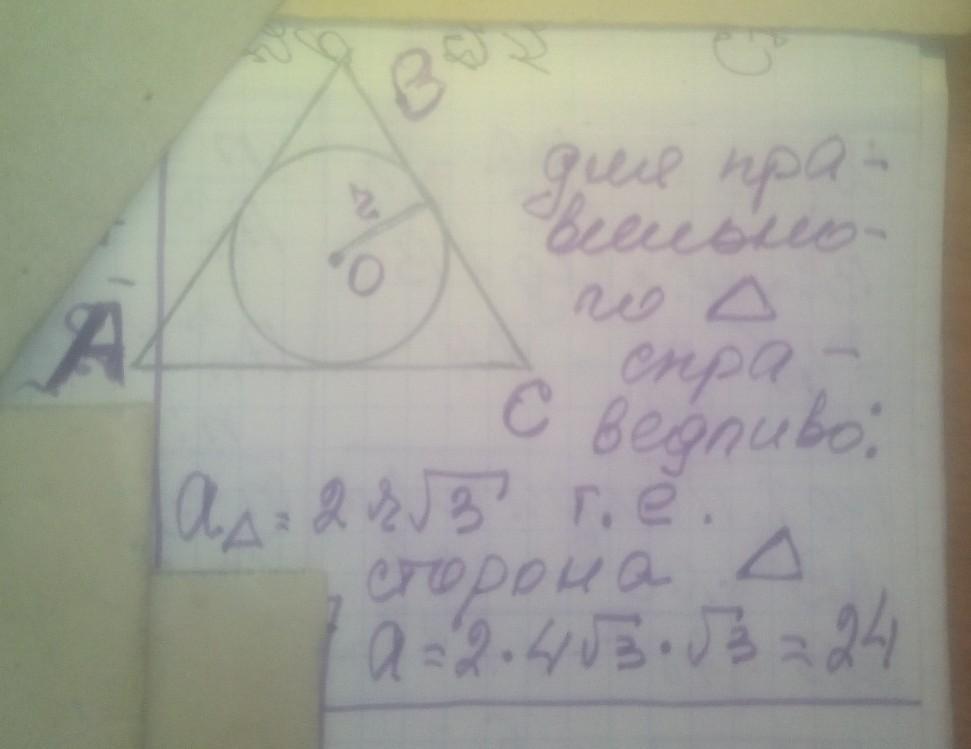 B
для пра-
r
вильно-
O
го △
A
спра-
C
ведливо:
a△ = 2r√3 т.е.
сторона △
a = 2·4√3·√3 = 24